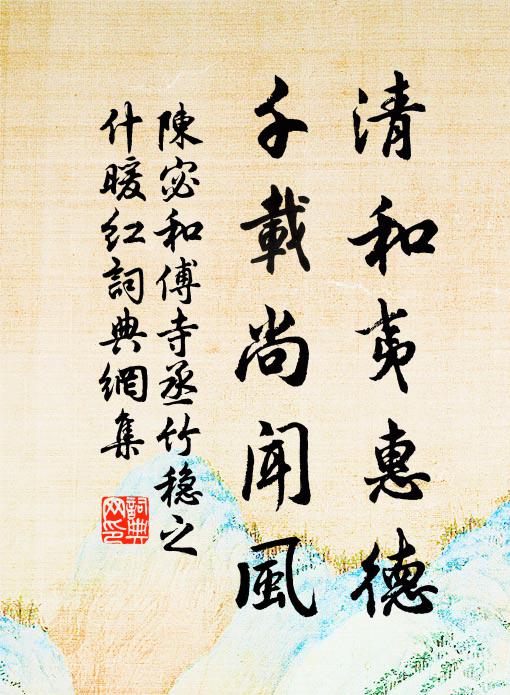 清和夷惠德
千載尚闻風
陳宓和傅寺丞竹穏之
什暖红詞典網集
詞典
网印